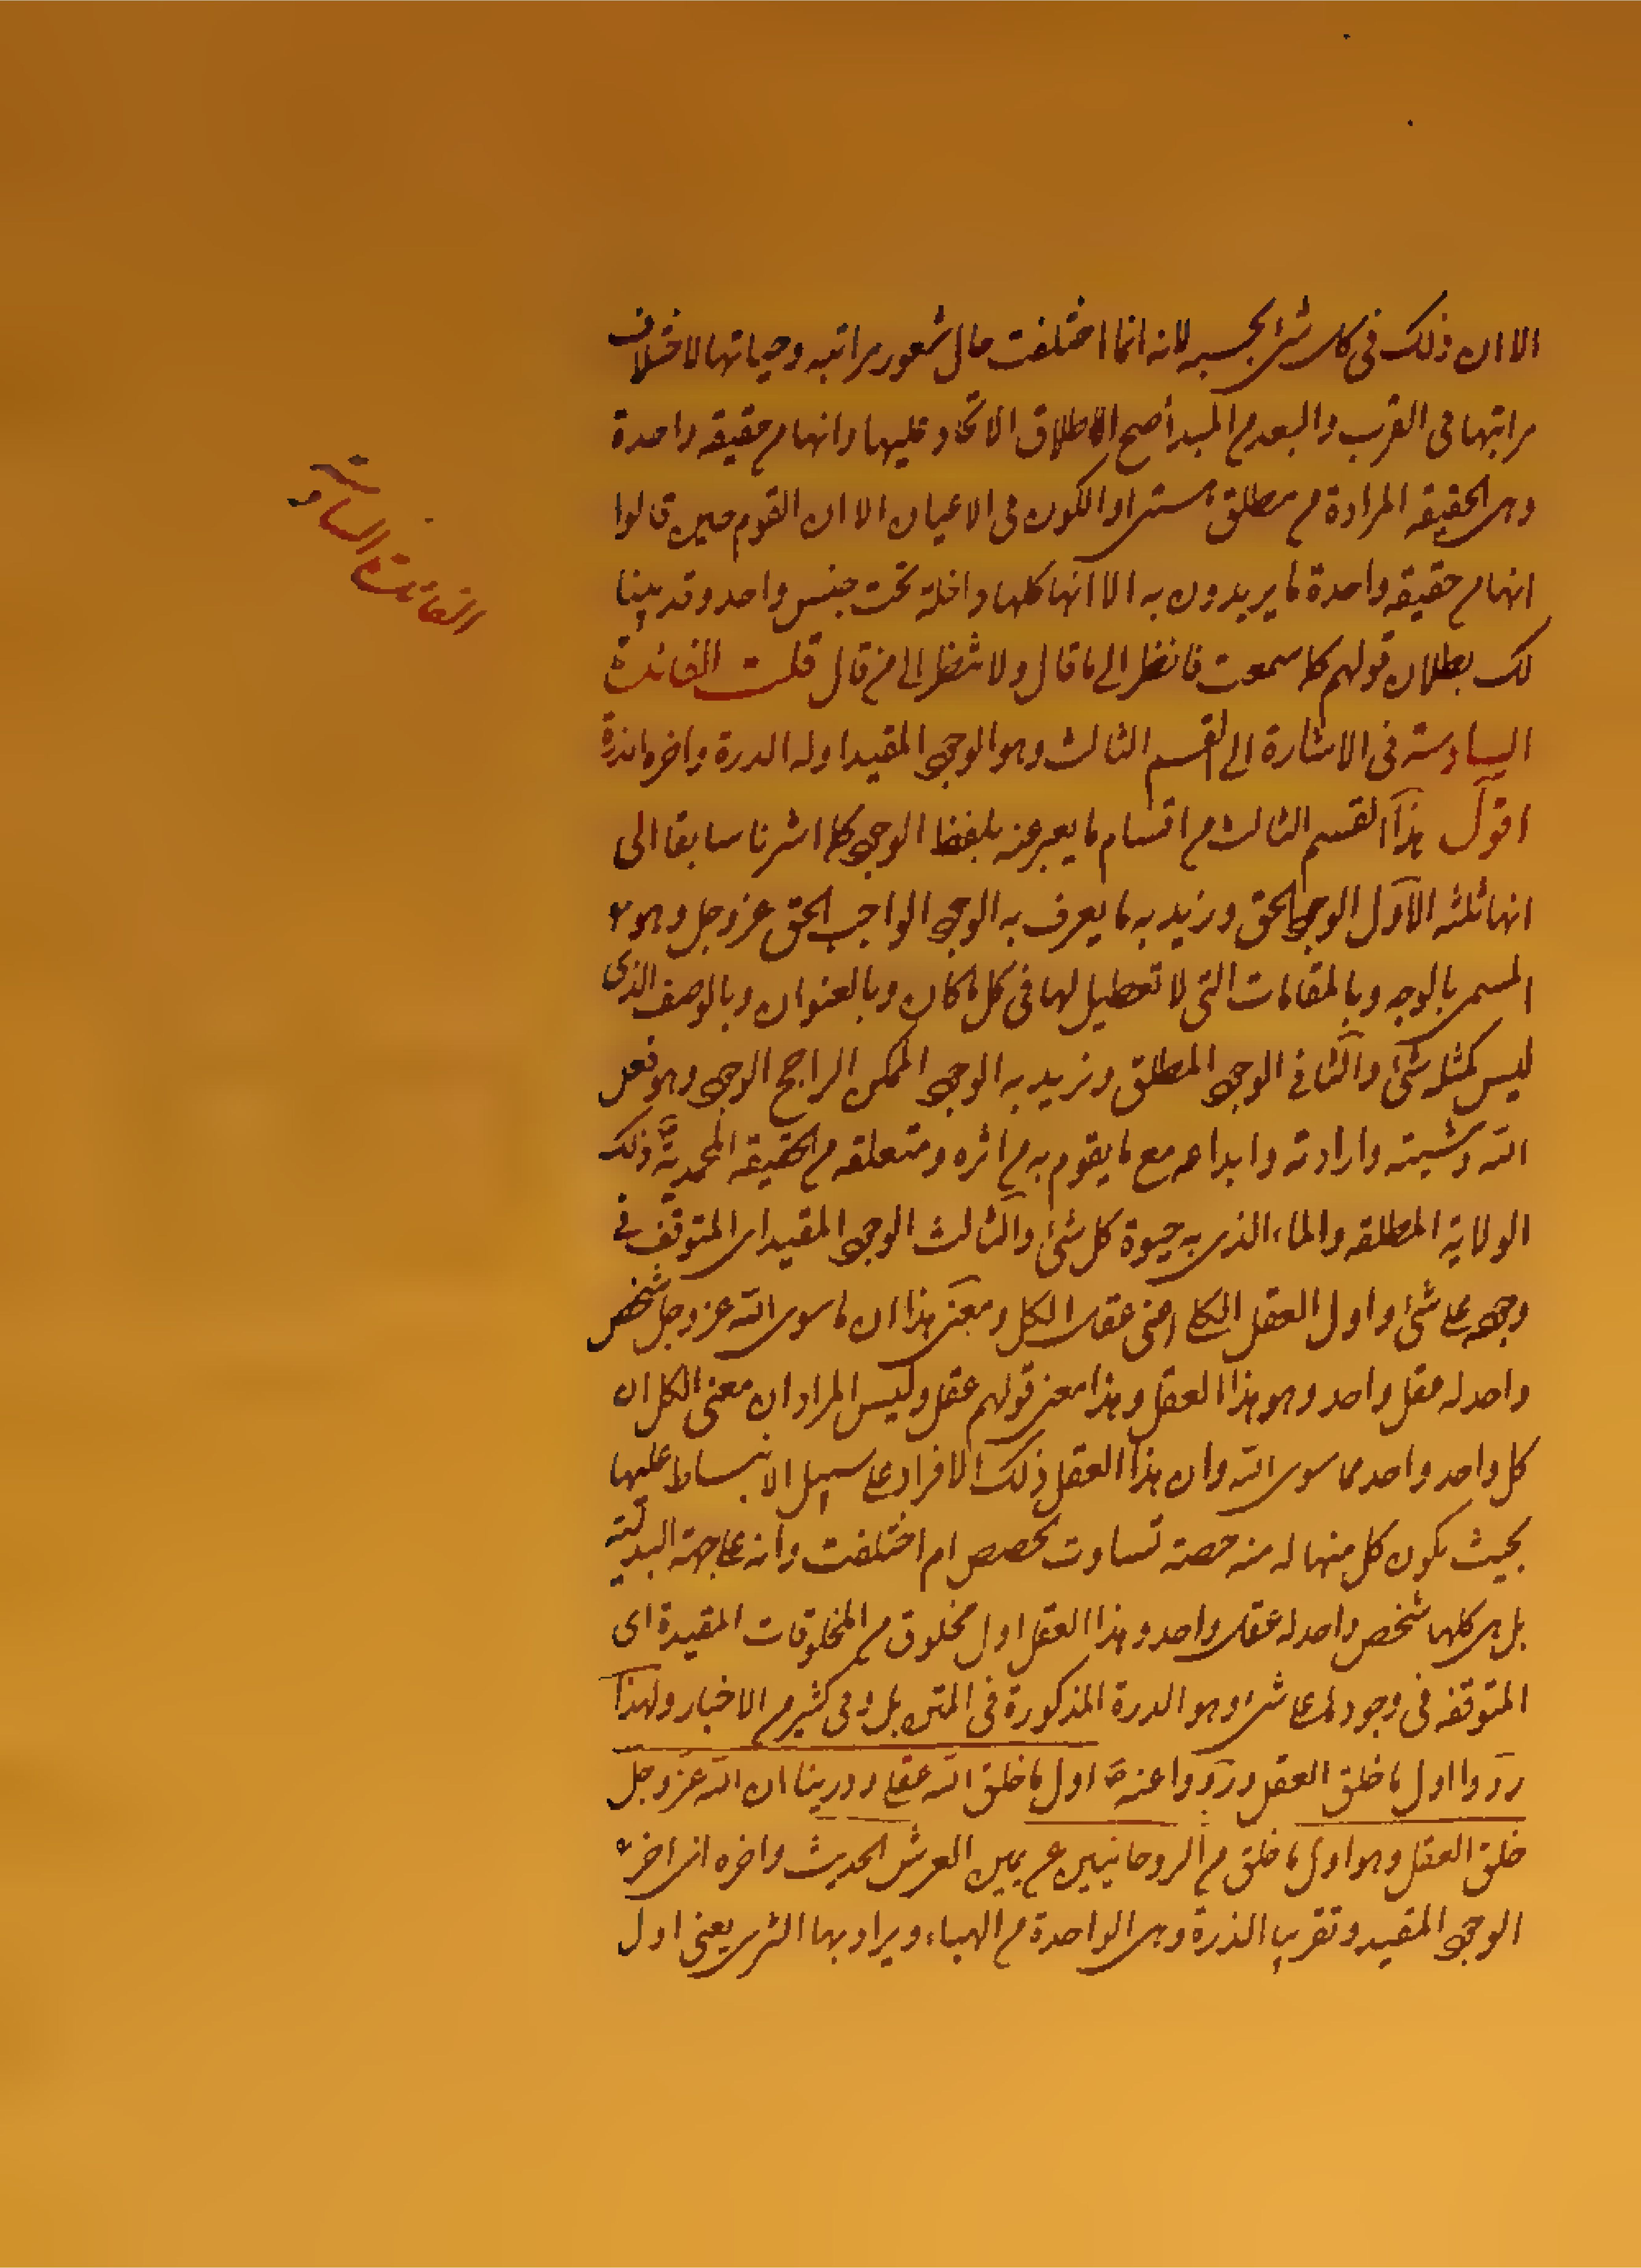 الا ان ذلك فى كل شئ بحسبه لانه انما اختلفت حال شعور مراتبه وحياتها لاختلاف
مراتبها فى القرب والبعد من المبدأ صح اطلاق الاتحاد عليها وانها من حقيقه واحدة
وهى الحقيقه المرادة من مطلق هستى او الكون فى الاعيان الا ان القوم حين قالوا
انها من حقيقه واحدة ما يريدون به الا انها كلها داخلة تحت جنس واحد وقد بينا
لك بطلان قولهم كما سمعت فانظر الى ما قال ولا تنظر الى من قال قلت الفائدة
السادسة فى الاشارة الى القسم الثالث وهو الوجود المقيد اوله الدرة واخره الذرة
اقول هذا القسم الثالث من اقسام ما يعبر عنه بلفظ الوجود كما اشرنا سابقا الى
انها ثلثه الاول الوجود الحق ونريد به ما يعرف به الوجود الواجب الحق عز وجل وهو
المسمى بالوجه وبالمقامات التى لا تعطيل لها فى كل مكان وبالعنوان وبالوصف الذى
ليس كمثله شئ والثانى الوجود المطلق ونريد به الوجود الممكن الراجح الوجود وهو فعل
الله ومشيته وارادته وابداعه مع ما يقوم به من اثره ومتعلقه من الحقيقه المحمدية ص وذلك
الولاية المطلقه والماء الذى به حيوة كل شئ والثالث الوجود المقيد اى المتوقف فى
وجوده على شئ واول العقل الكلى اعنى عقل الكل ومعنى هذا ان ما سوى الله عز وجل شخص
واحد له عقل واحد وهو هذا العقل وهذا معنى قولهم عقل وليس المراد ان معنى الكل ان
كل واحد واحد مما سوى الله وان هذا العقل ذلك الافراد على سبيل الانبساط عليها
بحيث يكون كل منها له منه حصة تساوت الحصص ام اختلفت وانه على جهة البدلية
بل هى كلها شخص واحد له عقل واحد وهذا العقل اول مخلوق من المخلوقات المقيدة اى
المتوقفه فى وجودها على شئ وهو الدرة المذكورة فى المتن بل وفى كثير من الاخبار ولهذا
رووا اول ما خلق العقل ورووا عنه ص اول ما خلق الله عقلى وروينا ان الله عز وجل
خلق العقل وهو اول ما خلق من الروحانيين عن يمين العرش الحديث واخره اى اخر
الوجود المقيد وتقريبا الذرة وهى الواحدة من الهباء ويراد بها الثرى يعنى اول
الفائدة السادسة